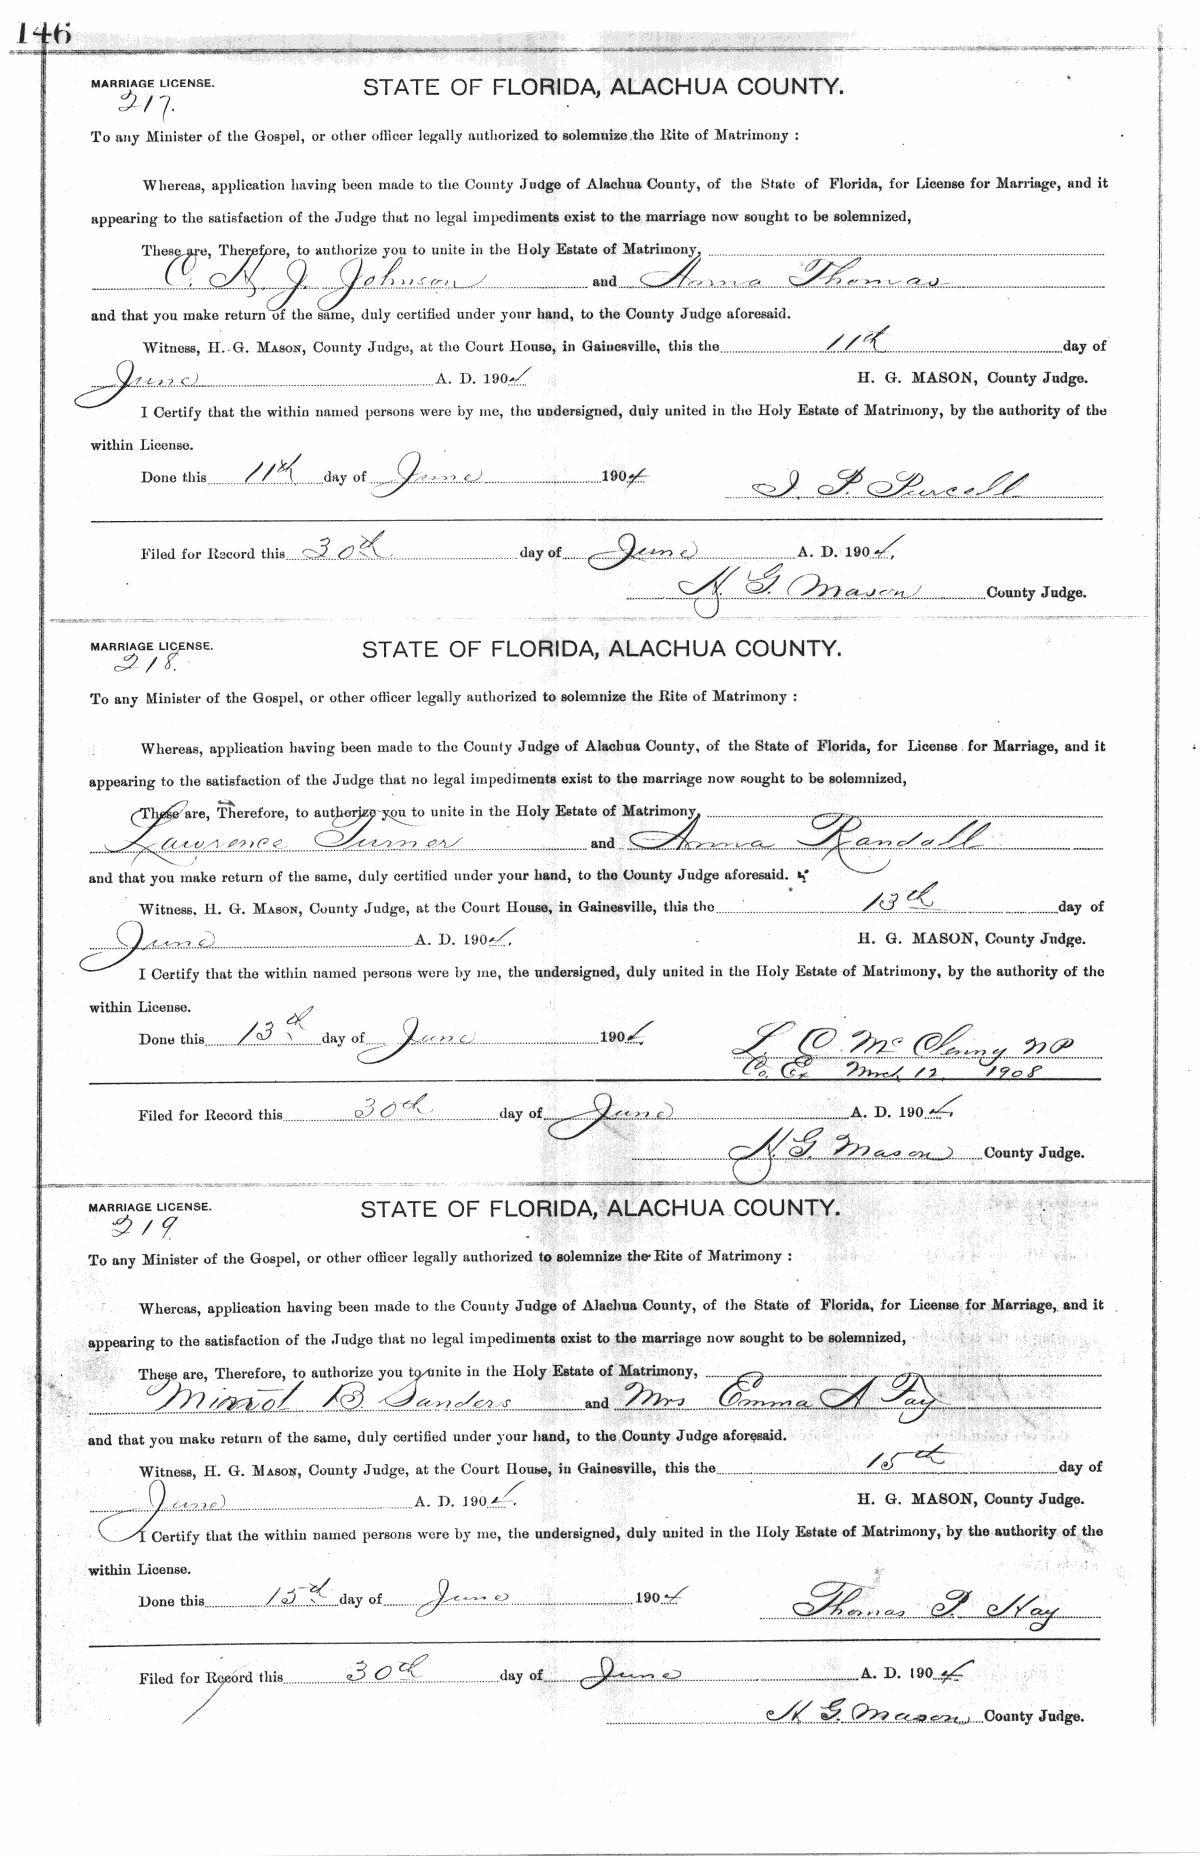 146
MARRIAGE LICENSE. STATE OF FLORIDA, ALACHUA COUNTY.
217.
To any Minister of the Gospel, or other officer legally authorized to solemnize the Rite of Matrimony :
Whereas, application having been made to the County Judge of Alachua County, of the State of Florida, for License for Marriage, and it
appearing to the satisfaction of the Judge that no legal impediments exist to the marriage now sought to be solemnized,
These are, Therefore, to authorize you to unite in the Holy Estate of Matrimony,
C. H. J. Johnson and Anna Thomas
and that you make return of the same, duly certified under your hand, to the County Judge aforesaid.
Witness, H. G. MASON, County Judge, at the Court House, in Gainesville, this the 11th day of
June A. D. 1904 H. G. MASON, County Judge.
I Certify that the within named persons were by me, the undersigned, duly united in the Holy Estate of Matrimony, by the authority of the
within License.
Done this 11th day of June 1904 P. Purcell
Filed for Record this 30th day of June A. D. 1904.
H. G. Mason County Judge.
MARRIAGE LICENSE. STATE OF FLORIDA, ALACHUA COUNTY.
218.
To any Minister of the Gospel, or other officer legally authorized to solemnize the Rite of Matrimony :
Whereas, application having been made to the County Judge of Alachua County, of the State of Florida, for License for Marriage, and it
appearing to the satisfaction of the Judge that no legal impediments exist to the marriage now sought to be solemnized,
These are, Therefore, to authorize you to unite in the Holy Estate of Matrimony,
Lawrence Turner and Anna Randall
and that you make return of the same, duly certified under your hand, to the County Judge aforesaid.
Witness, H. G. MASON, County Judge, at the Court House, in Gainesville, this the 13th day of
June A. D. 1904. H. G. MASON, County Judge.
I Certify that the within named persons were by me, the undersigned, duly united in the Holy Estate of Matrimony, by the authority of the
within License.
Done this 13th day of June 1904. L. C. Mc Clenny NP
Co. Ex Mrch 12. 1908
Filed for Record this 30th day of June A. D. 1904.
H. G. Mason County Judge.
MARRIAGE LICENSE. STATE OF FLORIDA, ALACHUA COUNTY.
219.
To any Minister of the Gospel, or other officer legally authorized to solemnize the Rite of Matrimony :
Whereas, application having been made to the County Judge of Alachua County, of the State of Florida, for License for Marriage, and it
appearing to the satisfaction of the Judge that no legal impediments exist to the marriage now sought to be solemnized,
These are, Therefore, to authorize you to unite in the Holy Estate of Matrimony,
B Sanders and Mrs Emma A Fay
and that you make return of the same, duly certified under your hand, to the County Judge aforesaid.
Witness, H. G. MASON, County Judge, at the Court House, in Gainesville, this the 15th day of
June A. D. 1904. H. G. MASON, County Judge.
I Certify that the within named persons were by me, the undersigned, duly united in the Holy Estate of Matrimony, by the authority of the
within License.
Done this 15th day of June 1904 Thomas P. Hay
Filed for Record this 30th day of June A. D. 1904
H. G. Mason County Judge.